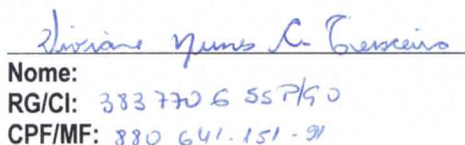 Viviane Nunes C. Terceiro
Nome:
RG/CI: 3837706 SSP/GO
CPF/MF: 880 641.151-91